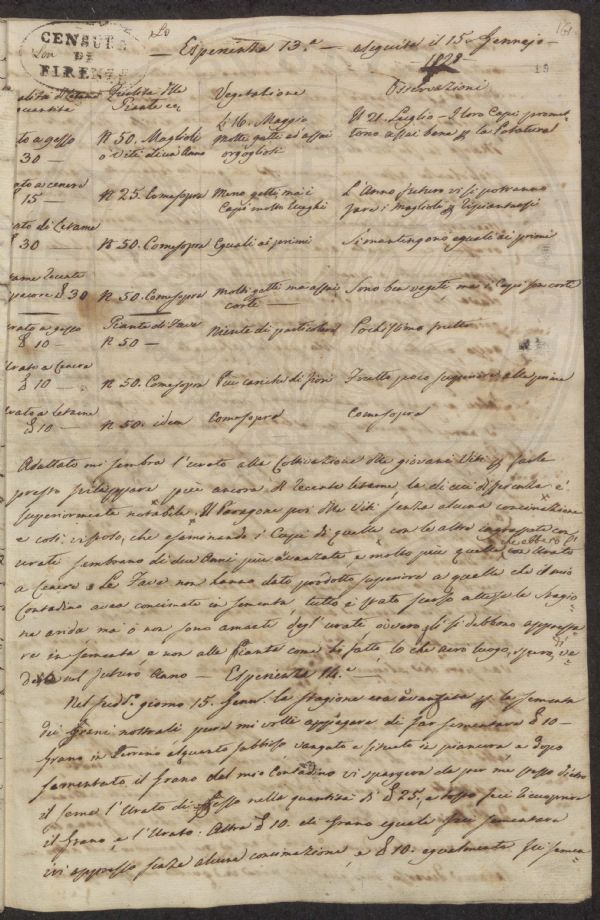 161
CENSURA
DI
FIRENZE
Esperienza 13.a — eseguita il 15. Gennajo
1828
19
Qualità dell'Urato
quantità
Qualità delle
Piante ec.
Vegetazione
Osservazioni
Urato a gesso
30 —
N 50. Magliole
o Viti di un Anno
Li 16. Maggio
Molte gatti ed assai
orgogliosi
Il 21. Luglio — I loro Capi promet-
tono assai bene p la Potatura
Urato a cenere
15 —
N 25. Comesopra
Meno gatti, ma i
Capi molto lunghi
L'Anno futuro vi si potranno
fare i Maglioli p
Urato di Letame
30 —
N 50. Comesopra
Eguali ai primi
Si mantengono eguali ai primi
Letame recente
pecore 30
N 50. Comesopra
Molti gatti ma assai
corti —
Sono ben vegeti ma i Capi son corti
Urato a gesso
10 —
Piante di Fave
N 50 —
Niente di particolare
Pochissimo frutto
Urato a Cenere
10 —
N 50. Comesopra
Più cariche di fiori
Frutto poco superiore alle prime
Urato a Letame
10 —
N 50. idem
Comesopra
Comesopra
Adattato mi sembra l'urato alla Coltivazione delle giovani Viti p farle
presto sviluppare più ancora del recente letame, la di cui differenza è
superiormente notabile. Il Paragone poi delle Viti senza alcuna concimazione
è così visposo, che esaminando i Capi di quelle con le altre ingrassate con
urato sembrano di due Anni più avanzate, e molto più quelle con Urato
a Cenere. Le Fave non hanno dato prodotto superiore a quelle che il mio
Contadino avea concimate in sementa, tutto è stato scarso attesa la stagio-
ne arida ma o non sono amanti degl'urati ovvero gli si debbono appressa-
re in sementa e non alle Piante come ho fatto, lo che avrò luogo, spero, ve-
dere sul futuro Anno — Esperienza 14.a —
Nel sudd.o giorno 15. Genn.o la stagione era avanzata p la sementa
dei Grani nostrali pure mi volli appagare di far sementare 10 —
Grano in Terreno alquanto sabbioso vangato e situato in pianura e dopo
sementato il Grano dal mio Contadino vi sparsi da per me stesso dietro
il seme l'Urato di Gesso nella quantità di 25. e tosto feci ricuoprire
il Grano, e l'Urato. Altre 10. di Grano eguale feci sementare
ivi appresso senza alcuna concimazione, e 10. egualmente feci semen-